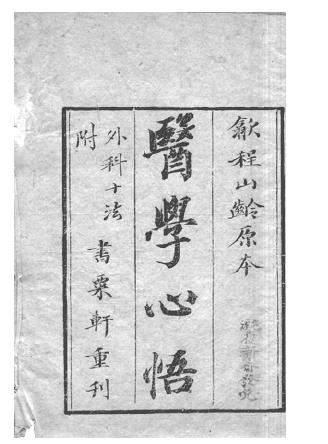 歙程山齡原本
醫學心悟
外科十法
附
書粟軒重刊